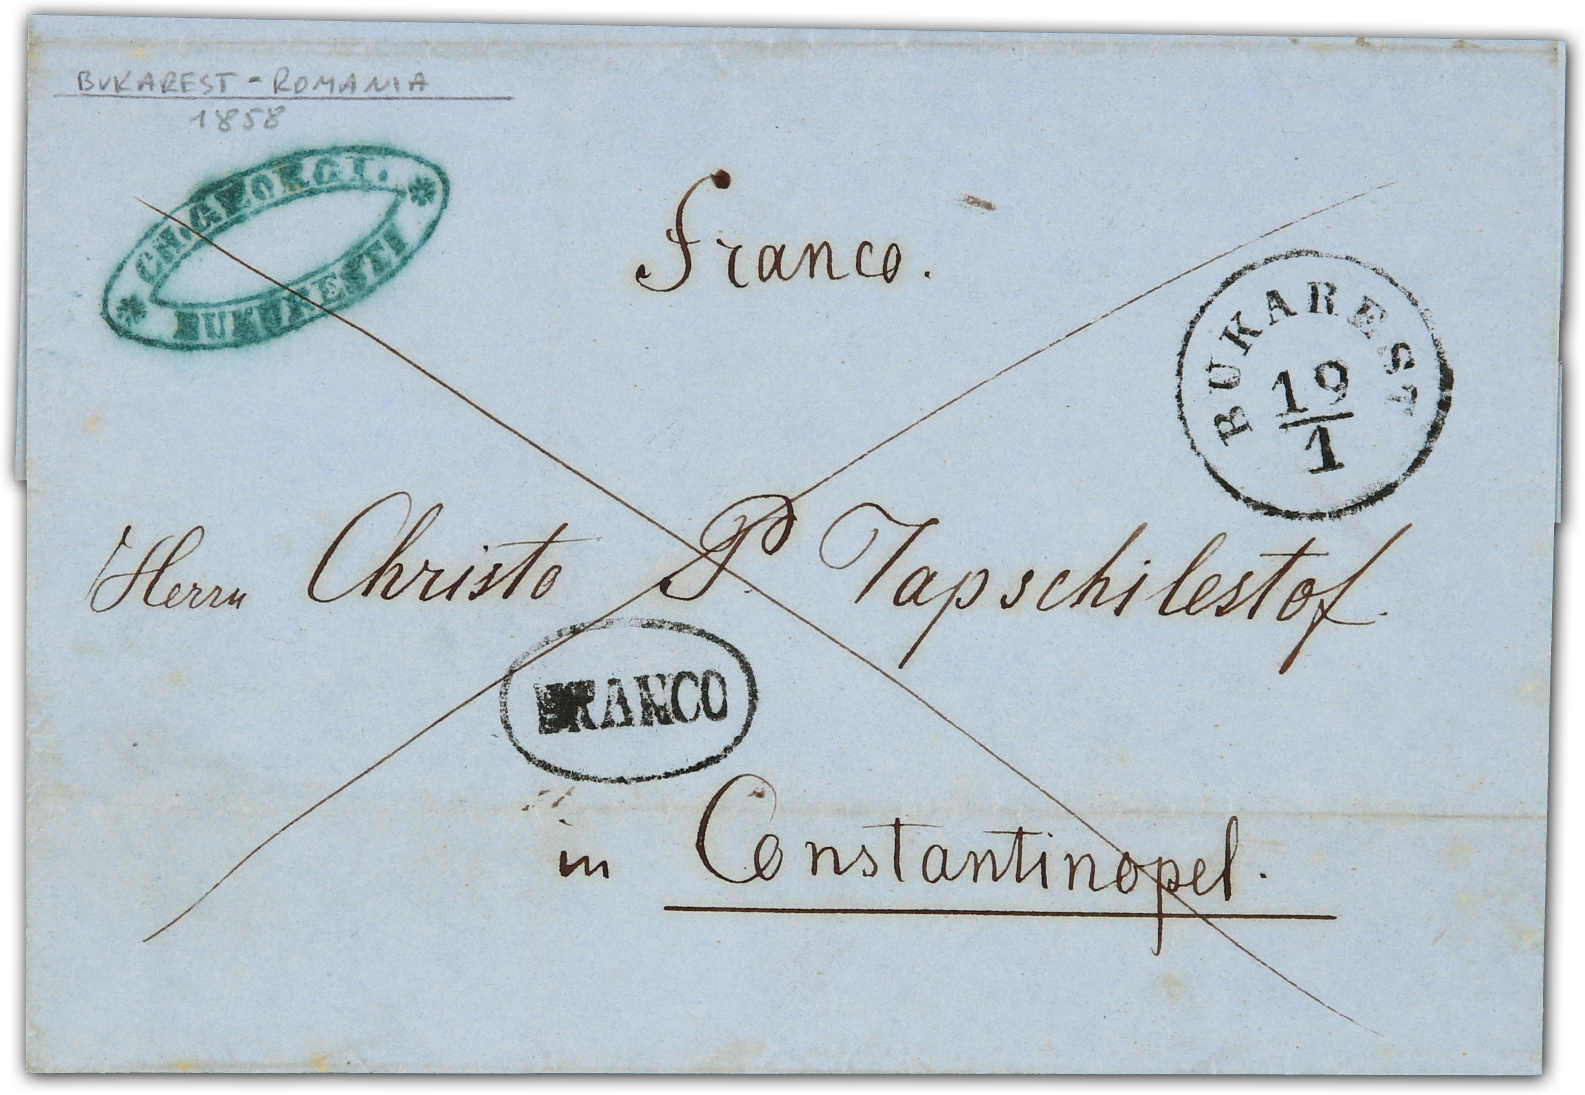 BUKAREST - ROMANIA
1858
BUKURESTI
Franco.
BUKAREST
19
1
Herrn Christo P Tapschilestof.
FRANCO
in Constantinopel.